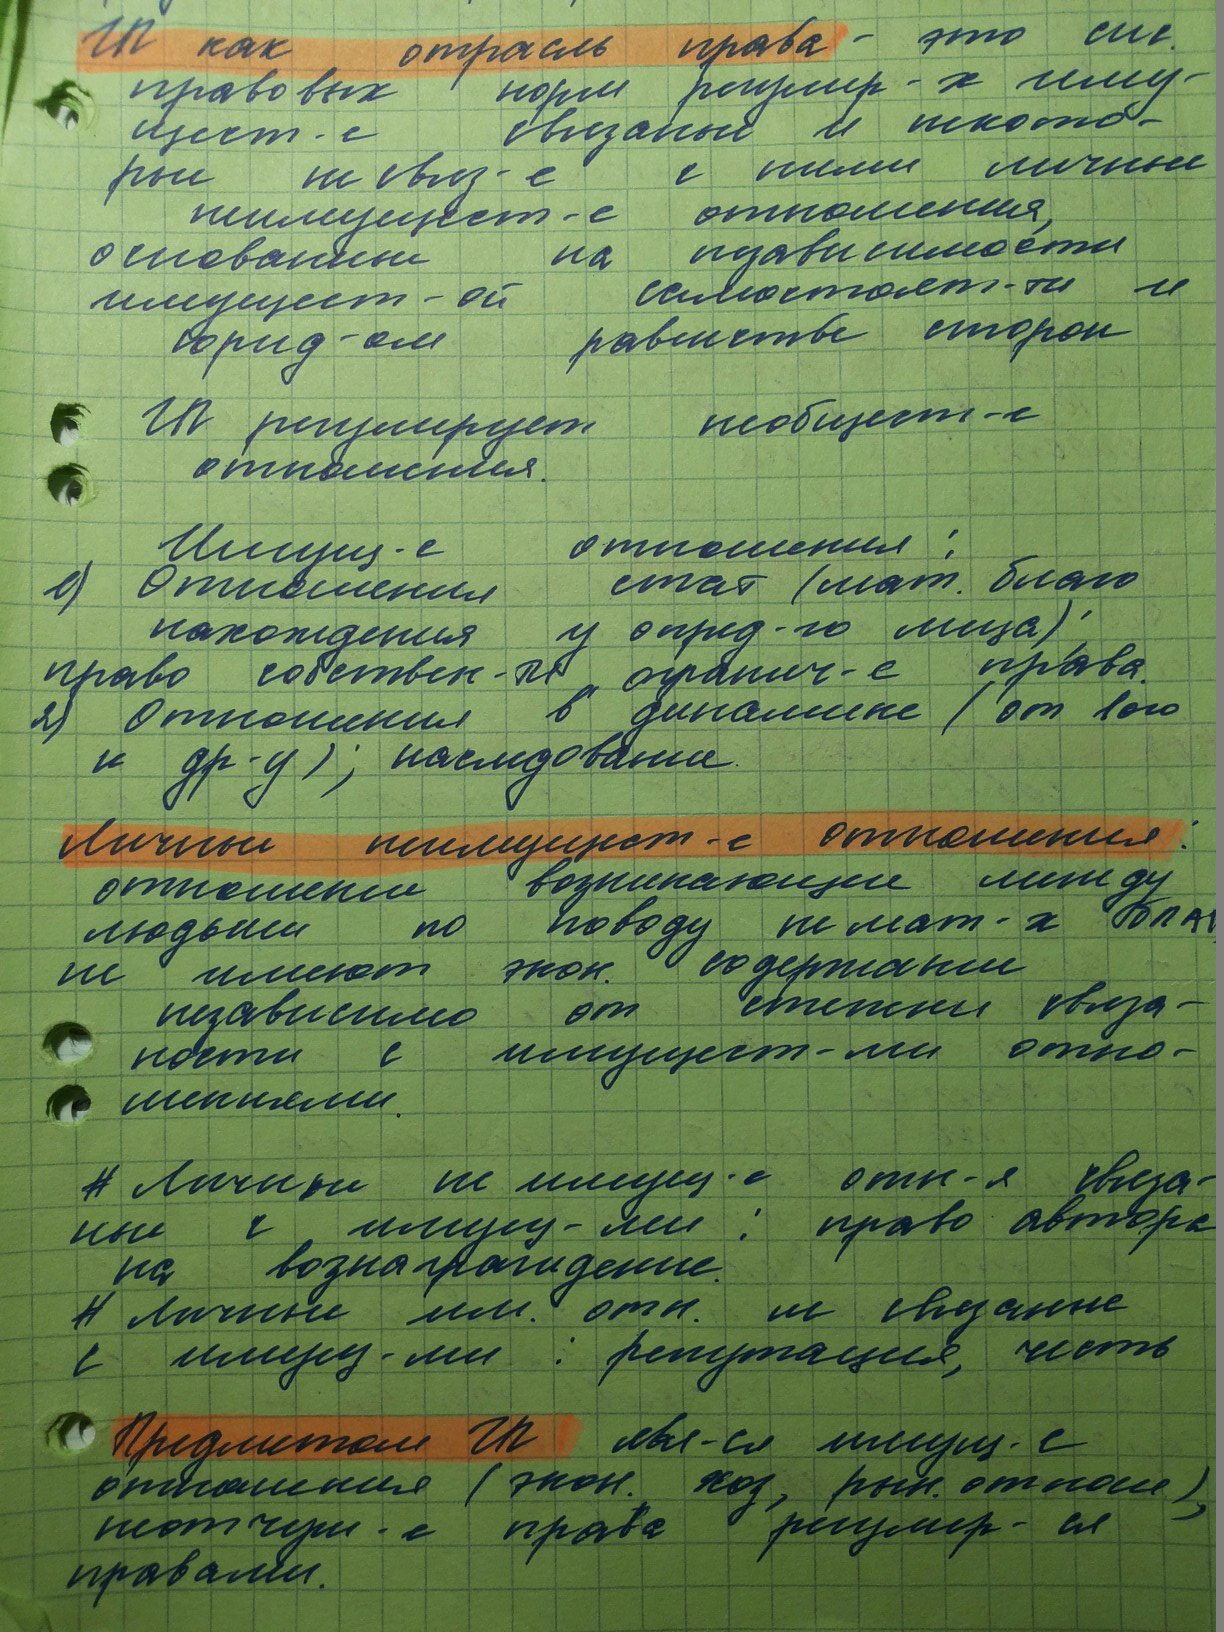 ГП как отрасль права - это сис.
правовых норм регулир-х иму-
щест-е связаные и некото-
рые не связ-е с ними личные
неимущест-е отношения,
основанные на независимости
имущест-ой самостоят-ти и
юрид-ом равенстве сторон
ГП регулирует необщест-е
отношения.
Имущ-е отношения:
1) Отношения стат (мат. благо
нахождения у опред-го лица);
право собствен-ти, огранич-е права.
2) Отношения в динамике (от 1ого
к др-у); наследование.
Личные неимущест-е отношения:
отношение возникающие между
людьми по поводу не мат-х БЛАГ
не имеют экон. содержание
независимо от степени связа-
ности с имущест-ми отно-
шениями.
# Личные не имущ-е отн-я связа-
ные с имущ-ми : право автора
на вознаграждение.
# Личные им. отн. не связаные
с имущ-ми : репутация, честь
Предметом ГП явл-ся имущ-е
отношения (экон. хоз, рын. отнош),
неотчуж-е права регулир-ся
правами.